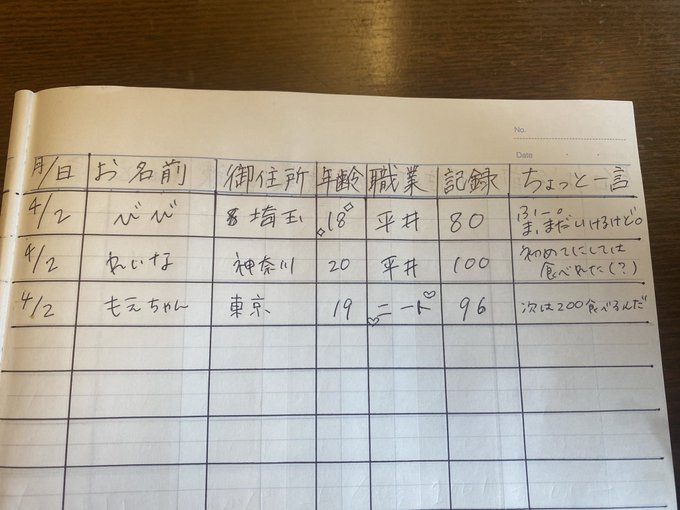 No.
Date
月/日 お名前 御住所 年齢 職業 記録 ちょっと一言
4/2 びび 埼玉 18 平井 80 ふー。
ま、まだいけるけど。
4/2 れいな 神奈川 20 平井 100 初めてにしては
食べれた(?)
4/2 もえちゃん 東京 19 ニート 96 次は200食べるんだ